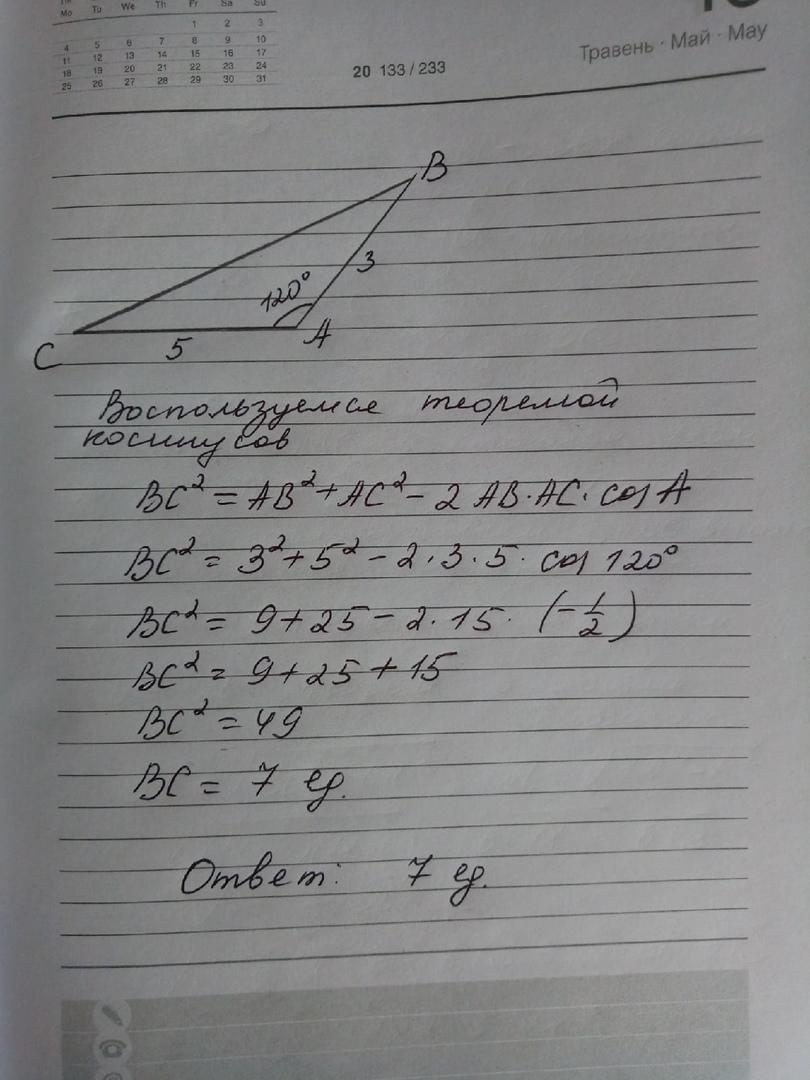 Mo Tu We Th Fr Sa Su
1 2 3
4 5 6 7 8 9 10
11 12 13 14 15 16 17
18 19 20 21 22 23 24
25 26 27 28 29 30 31
20 133 / 233
Травень · Май · May
B
3
120°
C
5
A
Воспользуемся теоремой
косинусов
BC² = AB² + AC² - 2 AB · AC · cos A
BC² = 3² + 5² - 2 · 3 · 5 · cos 120°
BC² = 9 + 25 - 2 · 15 · (-1/2)
BC² = 9 + 25 + 15
BC² = 49
BC = 7 ед.
Ответ: 7 ед.